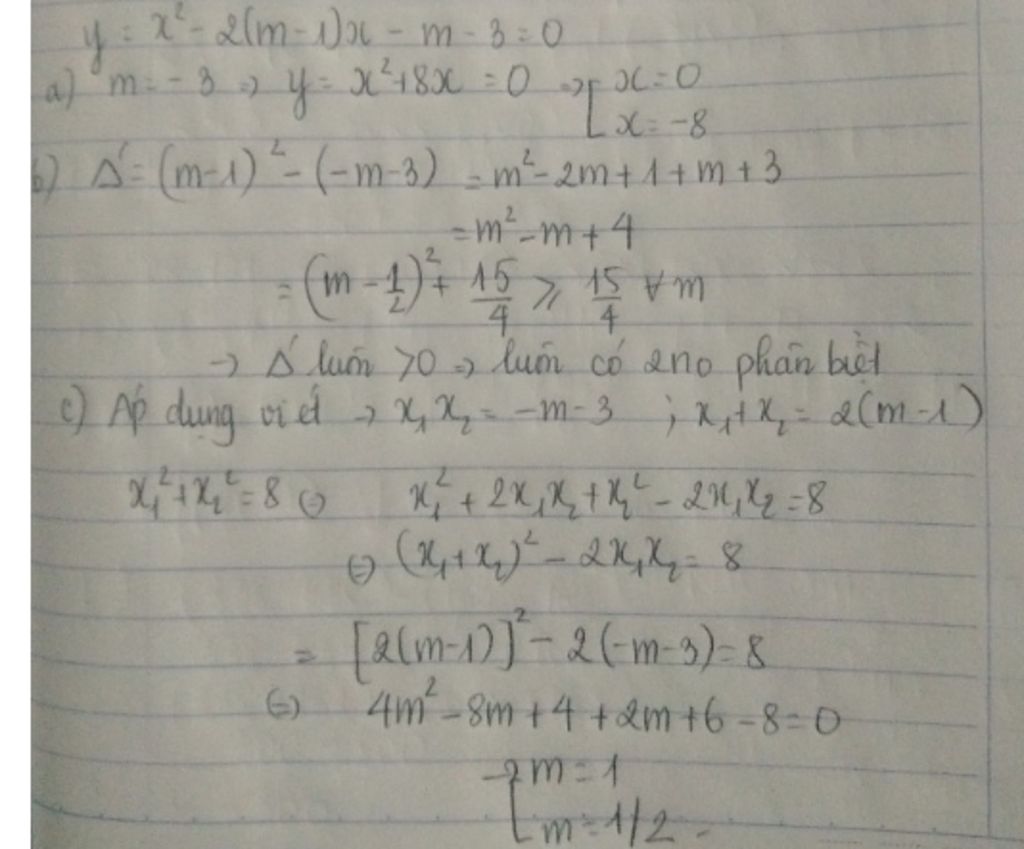 y = x² - 2(m-1)x - m - 3 = 0
a) m = -3 => y = x² + 8x = 0 => [ x = 0
x = -8
b) Δ' = (m-1)² - (-m-3) = m² - 2m + 1 + m + 3
= m² - m + 4
= (m - 1/2)² + 15/4 ⩾ 15/4 ∀m
→ Δ' luôn >0 => luôn có 2no phân biệt
c) Áp dụng viét → x₁x₂ = -m-3 ; x₁+x₂ = 2(m-1)
x₁²+x₂² = 8 (=) x₁² + 2x₁x₂ + x₂² - 2x₁x₂ = 8
(=) (x₁+x₂)² - 2x₁x₂ = 8
= [2(m-1)]² - 2(-m-3) = 8
(=) 4m² - 8m + 4 + 2m + 6 - 8 = 0
→ [ m = 1
m = 1/2 -